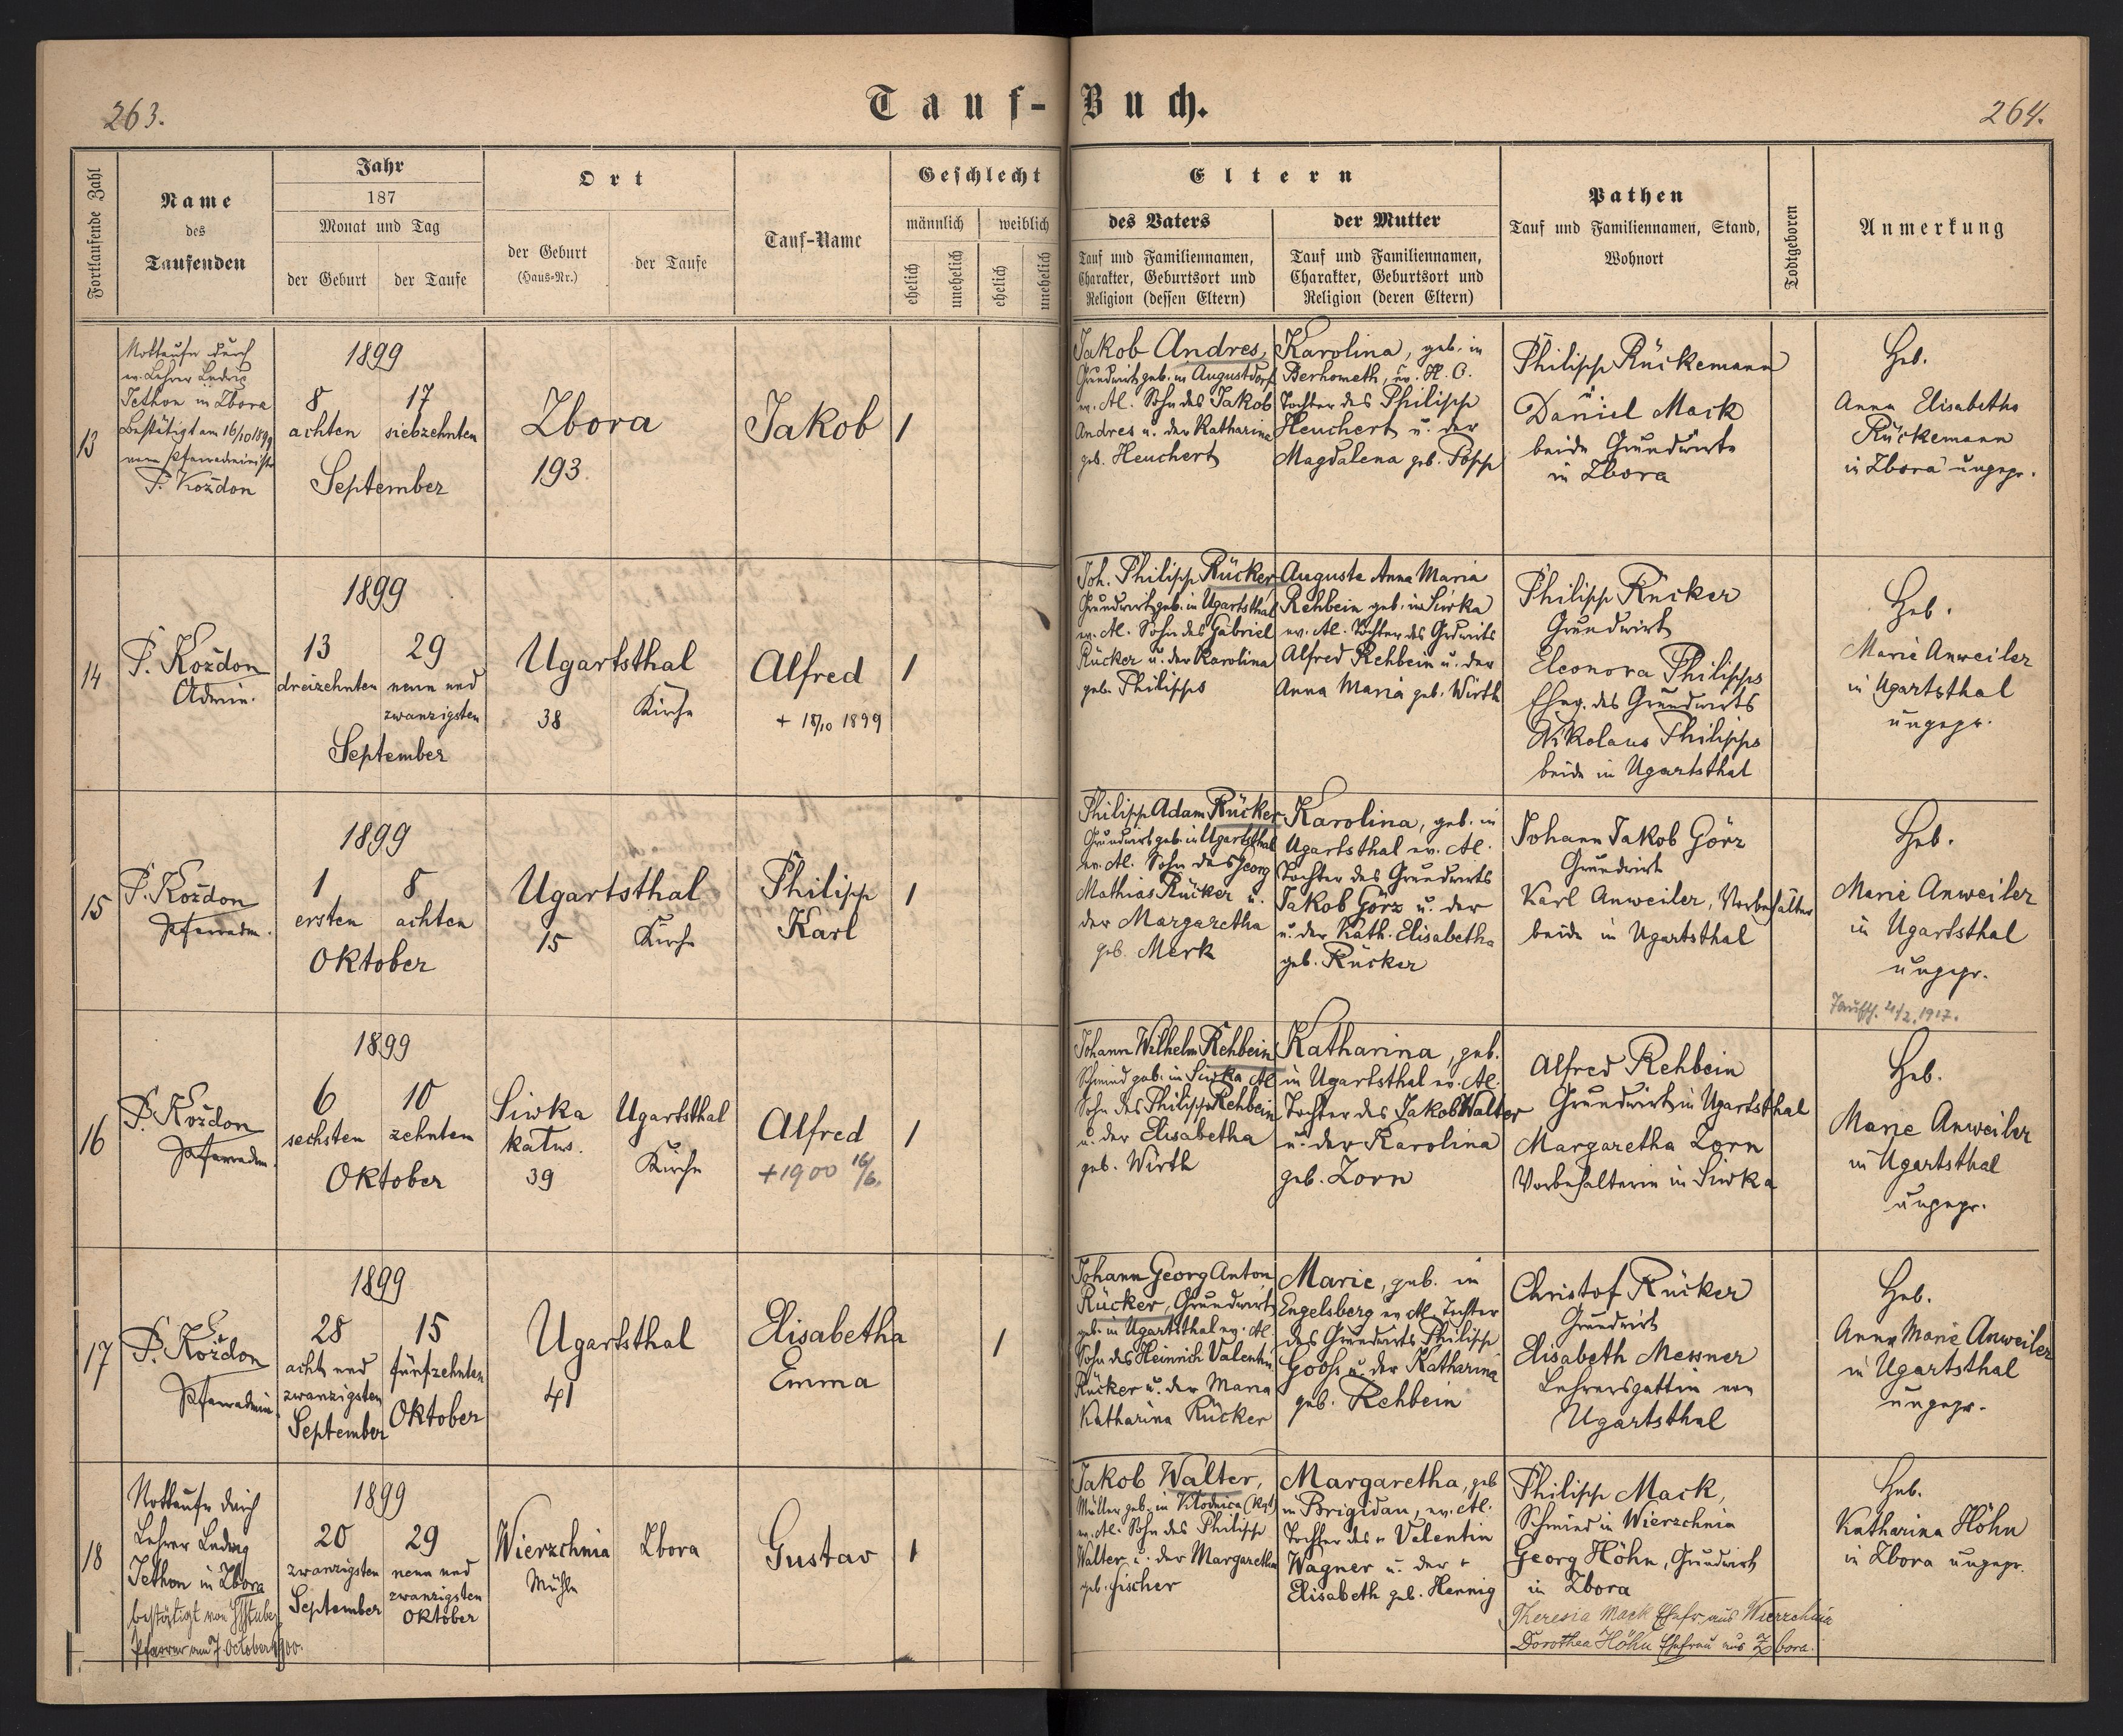 263.
Tauf-Buch.
264.
Fortlaufende Zahl
Name
des
Taufenden
Jahr
187
Monat und Tag
der Geburt
der Taufe
Ort
der Geburt
(Haus-Nr.)
der Taufe
Tauf-Name
Geschlecht
männlich
weiblich
ehelich
unehelich
ehelich
unehelich
Eltern
des Vaters
Tauf und Familiennamen,
Charakter, Geburtsort und
Religion (dessen Eltern)
der Mutter
Tauf und Familiennamen,
Charakter, Geburtsort und
Religion (deren Eltern)
Pathen
Tauf und Familiennamen, Stand,
Wohnort
Todtgeboren
Anmerkung
13
Nottaufe durch
ev. Lehrer Ludwig
Jethon in Zbora
Bestätigt am 16/10 1899
vom Pfarradminister
P. Kożdon
1899
8
achten
17
siebzehnten
September
Zbora
193.
Jakob
1
Jakob Andres,
Grundwirt geb. in Augustdorf
ev. Al. Sohn des Jakob
Andres u. der Katharina
geb. Heuchert
Karolina, geb. in
Berhometh, ev. H. C.
Tochter des Philipp
Heuchert u. der
Magdalena geb. Popp
Philipp Rückemann
u.
Daniel Mack
beide Grundwirte
in Zbora
Heb.
Anna Elisabetha
Rückemann
in Zbora ungepr.
14
P. Kożdon
Admin.
1899
13
dreizehnten
29
neun und
zwanzigsten
September
Ugartsthal
38
Kirche
Alfred
+ 18/10 1899
1
Joh. Philipp Rücker
Grundwirt geb. in Ugartsthal
ev. Al. Sohn des Gabriel
Rücker u. der Karolina
geb. Philipps
Auguste Anna Maria
Rehbein geb. in Siwka
ev. Al. Tochter des Grdwirts
Alfred Rehbein u. der
Anna Maria geb. Wirth
Philipp Rücker
Grundwirt
Eleonora Philipps
Eheg. des Grundwirts
Nikolaus Philipps
beide in Ugartsthal
Heb.
Marie Anweiler
in Ugartsthal
ungepr.
15
P. Kożdon
Pfarradm.
1899
1
ersten
8
achten
Oktober
Ugartsthal
15
Kirche
Philipp
Karl
1
Philipp Adam Rücker
Grundwirt geb. in Ugartsthal
ev. Al. Sohn des Georg
Mathias Rücker u.
der Margaretha
geb. Merk
Karolina, geb. in
Ugartsthal ev. Al.
Tochter des Grundwirts
Jakob Görz u. der
u. der Kath. Elisabetha
geb. Rücker
Johann Jakob Görz
Grundwirt
Karl Anweiler, Vorbehälter
beide in Ugartsthal
Heb.
Marie Anweiler
in Ugartsthal
ungepr.
Taufsch. 4/2. 1917.
16
P. Kożdon
Pfarradm.
1899
6
sechsten
10
zehnten
Oktober
Siwka
katus.
39
Ugartsthal
Kirche
Alfred
+ 1900 16/6.
1
Johann Wilhelm Rehbein
Schmied geb. in Siwka Al
Sohn des Philipp Rehbein
u. der Elisabetha
geb. Wirth
Katharina, geb.
in Ugartsthal ev. Al.
Tochter des Jakob Walter
u. der Karolina
geb. Zorn
Alfred Rehbein
Grundwirt in Ugartsthal
Margaretha Zorn
Vorbehalterin in Siwka
Heb.
Marie Anweiler
in Ugartsthal
ungepr.
17
P. Kożdon
Pfarradmin.
1899
28
acht und
zwanzigsten
September
15
fünfzehnten
Oktober
Ugartsthal
41
Elisabetha
Emma
1
Johann Georg Anton
Rücker, Grundwirt
geb. in Ugartsthal ev. Al.
Sohn des Heinrich Valentin
Rücker u. der Maria
Katharina Rücker
Marie, geb. in
Engelsberg ev Al. Tochter
des Grundwirts Philipp
Goohs u. der Katharina
geb. Rehbein
Christof Rücker
Grundwirt
Elisabeth Messner
Lehrersgattin von
Ugartsthal
Heb.
Anna Marie Anweiler
in Ugartsthal
ungepr.
18
Nottaufe durch
Lehrer Ludwig
Jethon in Zbora
bestätigt von
Pfarrer am 7 October 1900.
1899
20
zwanzigsten
September
29
neun und
zwanzigsten
Oktober
Wierzchnia
Mühle
Zbora
Gustav
1
Jakob Walter,
Müller geb. in Klodnica (Kgt)
ev. Al. Sohn des Philipp
Walter u. der Margaretha
geb. Fischer
Margaretha, geb
in Brigidau, ev. Al.
Tochter des Valentin
Wagner u. der
Elisabeth geb. Hennig
Philipp Mack,
Schmied in Wierzchnia
Georg Höhn, Grundwirt
in Zbora
Theresia Mack Ehefr. aus Wierzchnia
Dorothea Höhn Ehefrau aus Zbora.
Heb.
Katharina Höhn
in Zbora ungepr.